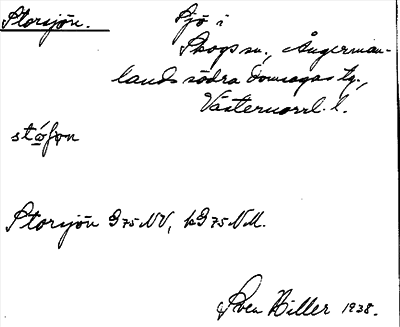 Storsjön. Sjö i
Skogs sn., Ångerman-
lands södra domsagas tg.,
Västernorrl. l.
stó̱fǫn
Storsjön G 75 NV, bG 75 NM.
Sven Hiller 1938.